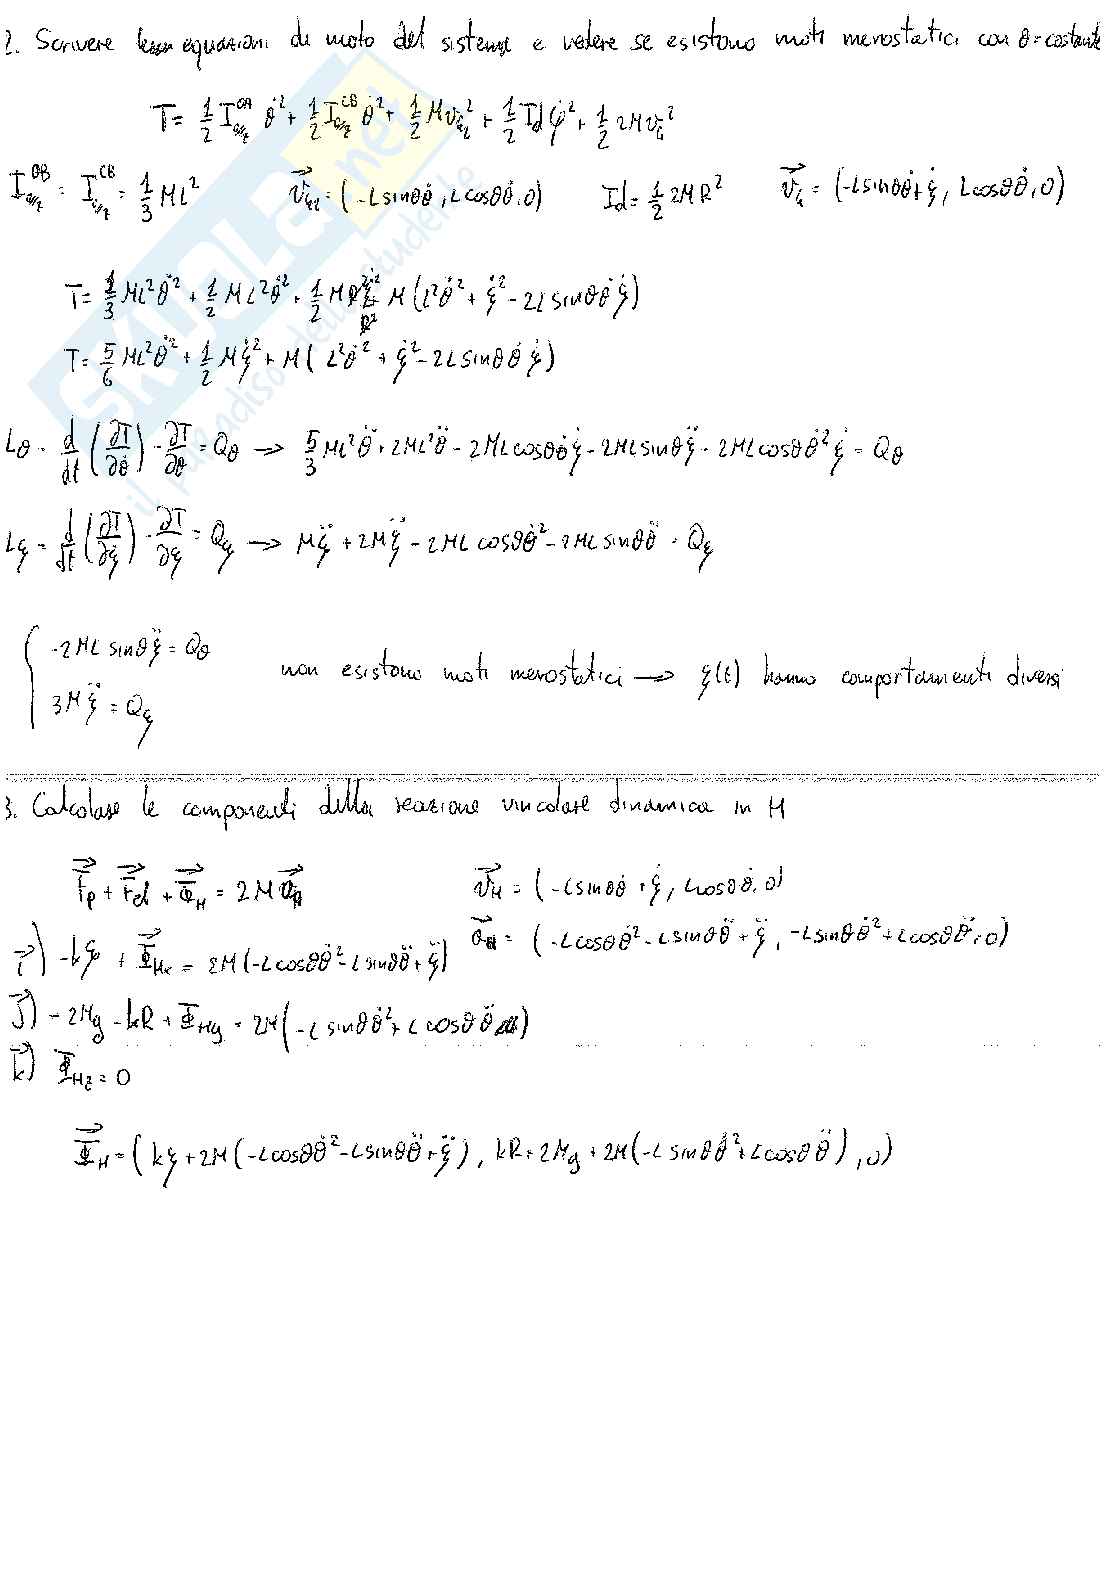 2. Scrivere le equazioni di moto del sistema e vedere se esistono moti merostatici con θ=costante
T = 1/2 I_{O/z}^{OA} θ̇² + 1/2 I_{C/z}^{CB} θ̇² + 1/2 M v_{G2}² + 1/2 I_d φ̇² + 1/2 2M v_G²
I_{O/z}^{OB} = I_{C/z}^{CB} = 1/3 ML² v⃗_{G2} = (-L sinθ θ̇, L cosθ θ̇, 0) I_d = 1/2 2MR² v⃗_G = (-L sinθ θ̇ + ξ̇, L cosθ θ̇, 0)
T = 1/3 ML² θ̇² + 1/2 ML² θ̇² + 1/2 MR² ξ̇²/R² M (L² θ̇² + ξ̇² - 2L sinθ θ̇ ξ̇)
T = 5/6 ML² θ̇² + 1/2 M ξ̇² + M ( L² θ̇² + ξ̇² - 2L sinθ θ̇ ξ̇)
L_θ = d/dt (∂T/∂θ̇) - ∂T/∂θ = Q_θ → 5/3 ML² θ̈ + 2ML² θ̈ - 2ML cosθ θ̇ ξ̇ - 2ML sinθ ξ̈ - 2ML cosθ θ̇² ξ̇ = Q_θ
L_ξ = d/dt (∂T/∂ξ̇) - ∂T/∂ξ = Q_ξ → M ξ̈ + 2M ξ̈ - 2ML cosθ θ̇² - 2ML sinθ θ̈ = Q_ξ
{ -2ML sinθ ξ̈ = Q_θ
non esistono moti merostatici → ξ(t) hanno comportamenti diversi
3M ξ̈ = Q_ξ
3. Calcolare le componenti della reazione vincolare dinamica in H
F⃗_p + F⃗_el + Φ⃗_H = 2M a⃗_H v⃗_H = (-L sinθ θ̇ + ξ̇, L cosθ θ̇, 0)
a⃗_H = (-L cosθ θ̇² - L sinθ θ̈ + ξ̈, -L sinθ θ̇² + L cosθ θ̈, 0)
i⃗) -kξ + Φ⃗_{Hx} = 2M (-L cosθ θ̇² - L sinθ θ̈ + ξ̈)
j⃗) -2Mg - kR + Φ_{Hy} = 2M (-L sinθ θ̇² + L cosθ θ̈)
k⃗) Φ_{Hz} = 0
Φ⃗_H = (kξ + 2M (-L cosθ θ̇² - L sinθ θ̈ + ξ̈), kR + 2Mg + 2M (-L sinθ θ̇² + L cosθ θ̈), 0)
SKUOLA.net
il paradiso dello studente